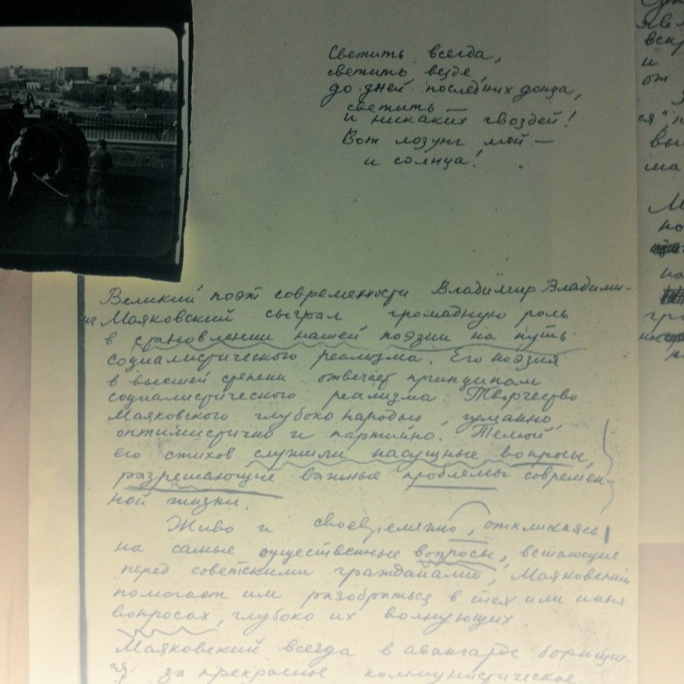 Светить всегда,
светить везде,
до дней последних донца,
светить —
и никаких гвоздей!
Вот лозунг мой —
и солнца!
Великий поэт современности Владимир Владими-
Маяковский сыграл громадную роль
в становлении нашей поэзии на путь
социалистического реализма. Его поэзия
в высшей степени отвечает принципам
социалистического реализма. Творчество
Маяковского глубоко народно, гуманно,
оптимистично и партийно. Темой
его стихов служили насущные вопросы,
разрешающие важные проблемы современ-
ной жизни.
Живо и своевременно, откликаясь
на самые существенные вопросы, встающие
перед советскими гражданами, Маяковский
помогает им разобраться в тех или иных
вопросах, глубоко их волнующих.
Маяковский всегда в авангарде борющих-
ся за прекрасное коммунистическое